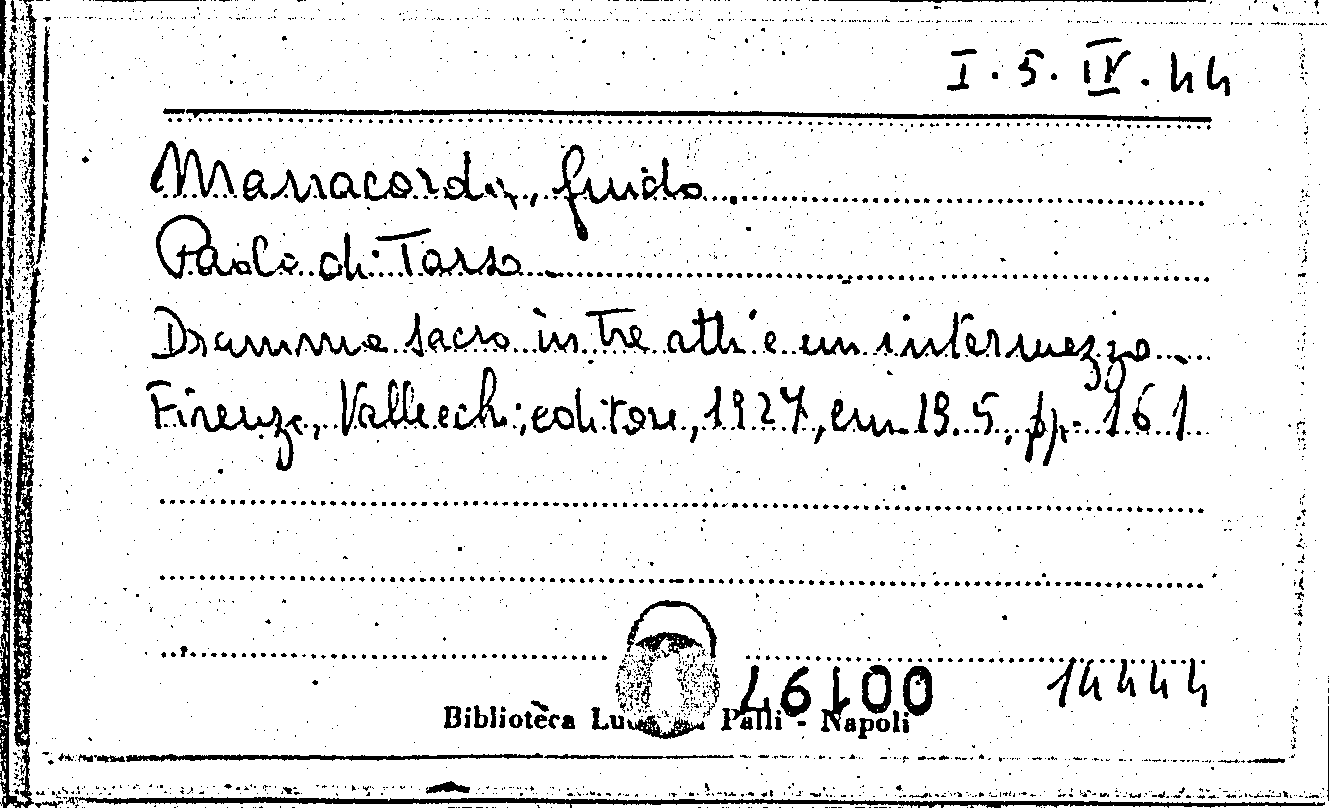 I. 5. IV. 44
Manacorda, Guido.
Paolo di Tarso.
Dramma sacro in tre atti e un intermezzo.
Firenze, Vallecchi, editore, 1927, cm. 19.5, pp. 161
00197 14444
Biblioteca Palli - Napoli